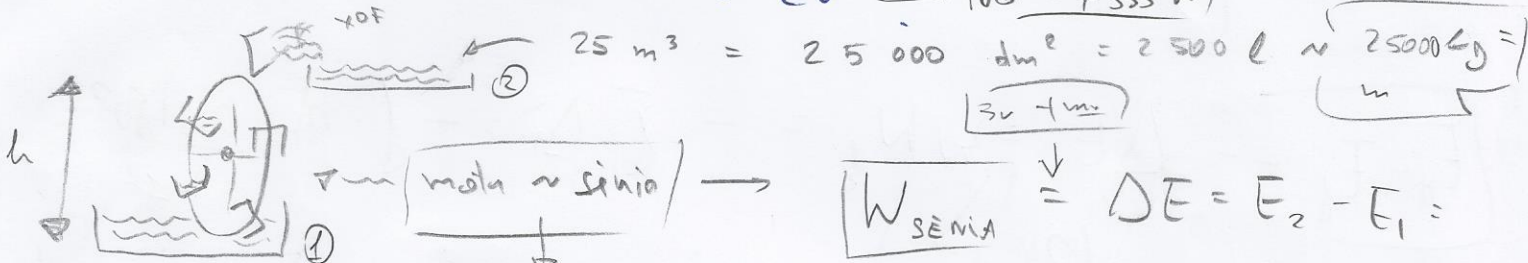 XOF
25 m³ = 25 000 dm² = 2 500 l ~ 25000 kg =
m
②
h
mola ~ sènia → W SÈNIA = ΔE = E₂ - E₁ =
①